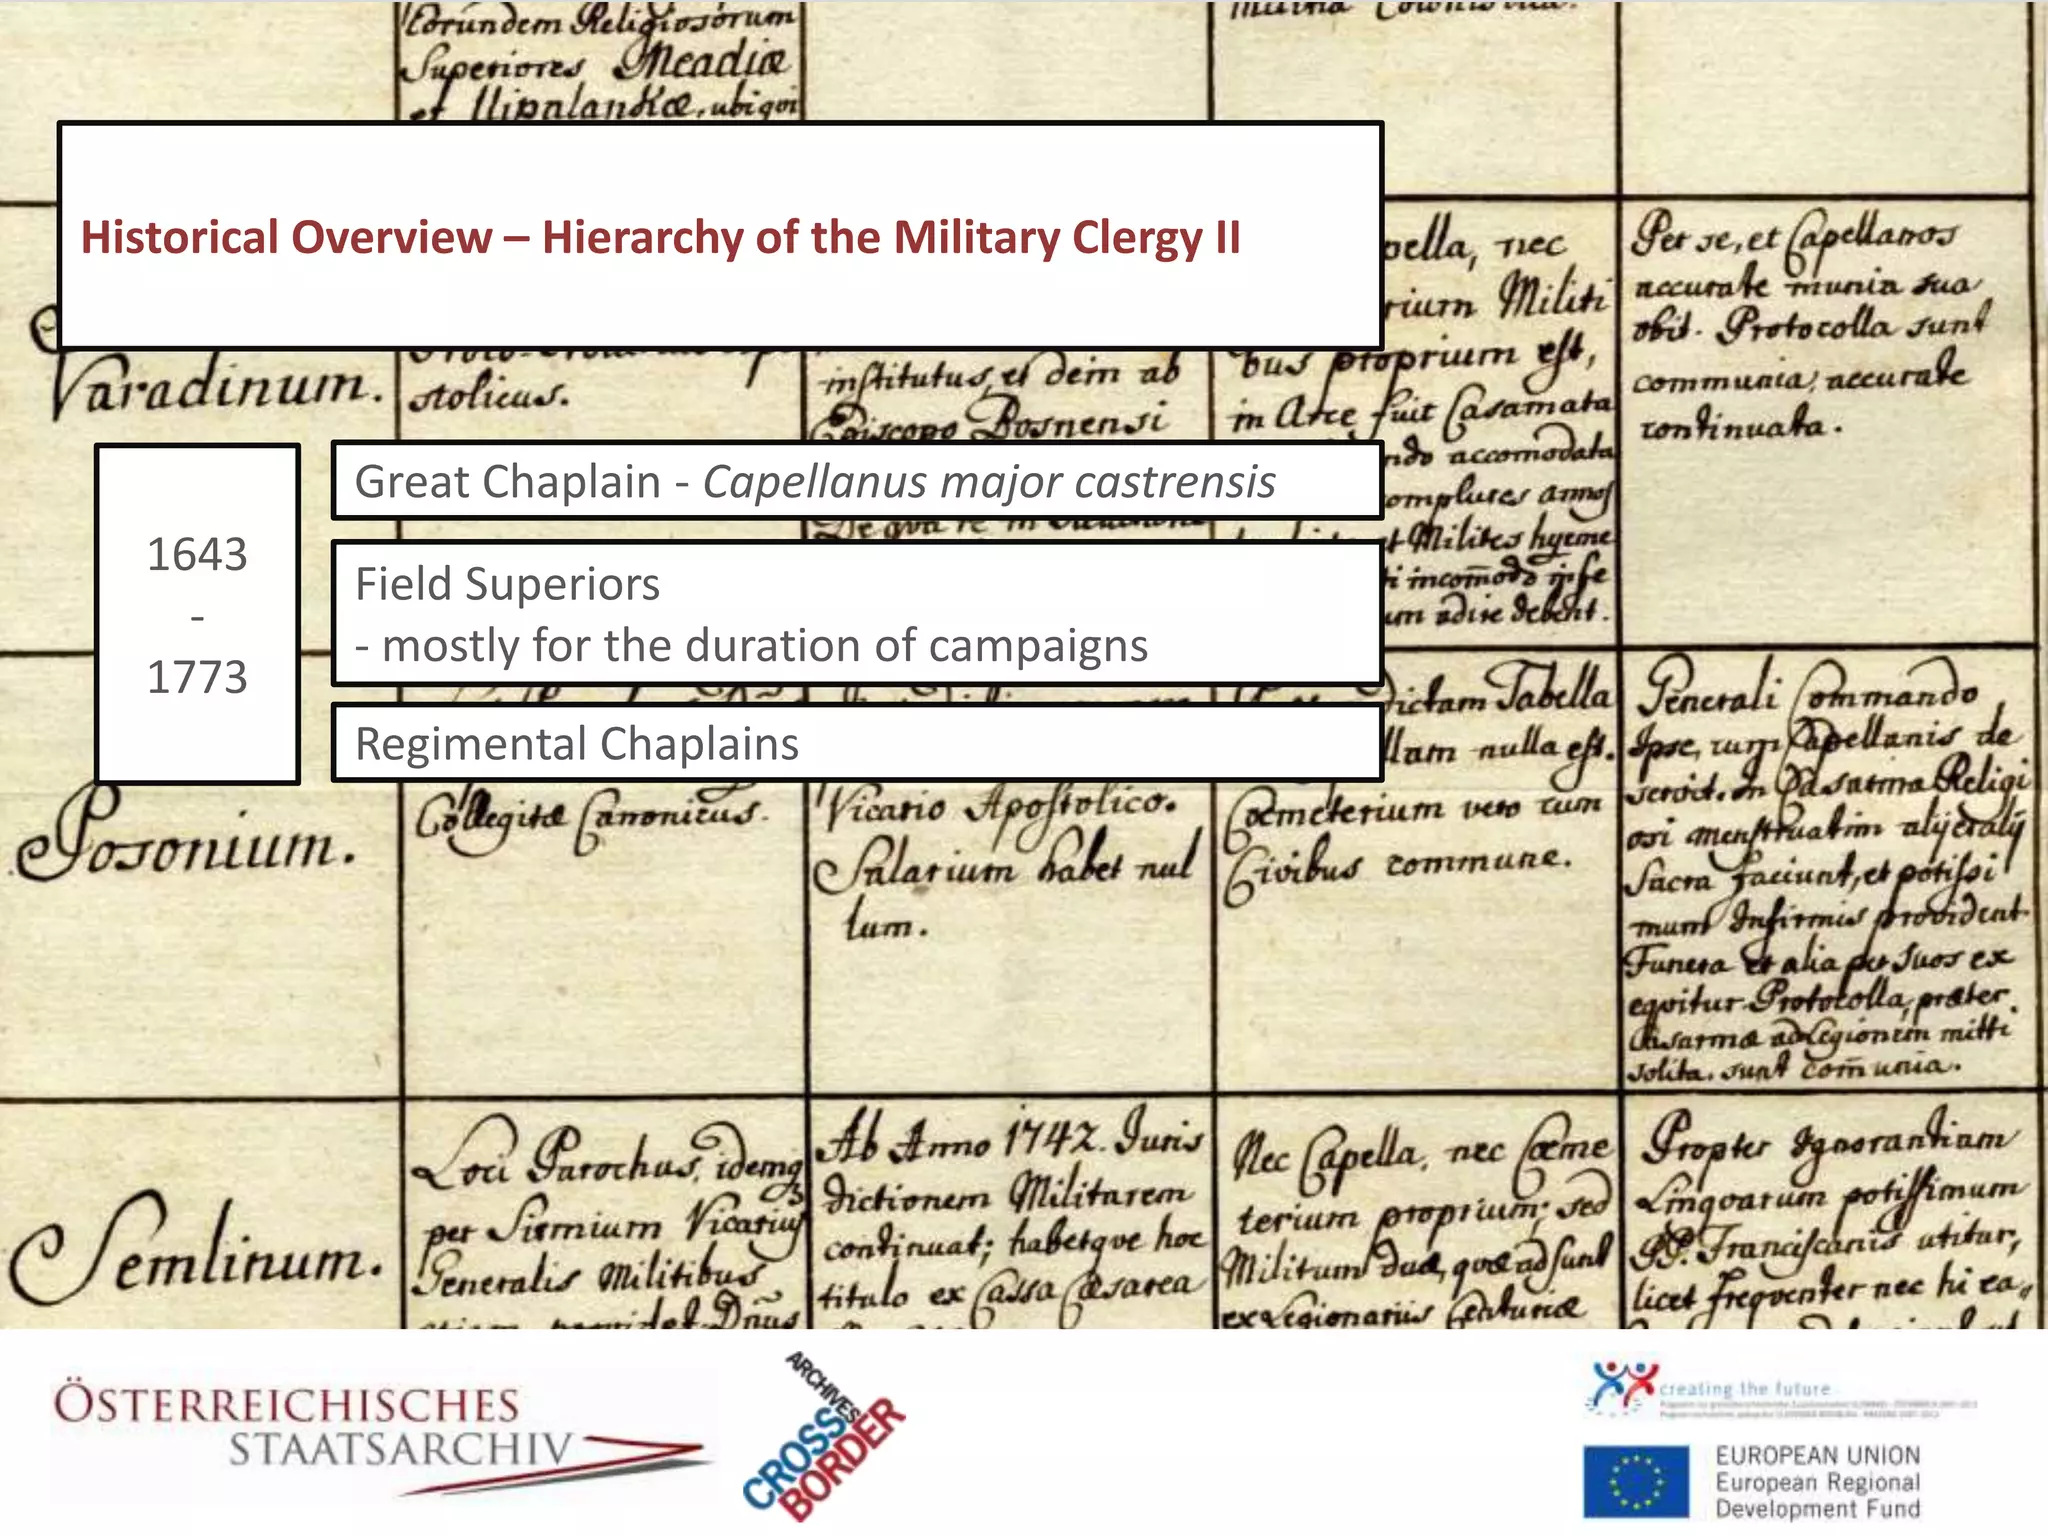 Eorundem Religiosorum
Superiores Meadiæ
et Uipalankæ, ubi qvi
Historical Overview – Hierarchy of the Military Clergy II
Varadinum.
stolicus.
institutus, et dein ab
Episcopo Bosnensi
pella, nec
rium Militi
bus proprium est,
in Arce fuit Casamata
ndo accomodata
omplures annos
et Milites hyeme
i incom̄odo ipse
um adire debent.
Per se, et Capellanos
accurate munia sua
obit. Protocolla sunt
communia, accurate
continuata.
1643
-
1773
Great Chaplain - Capellanus major castrensis
Field Superiors
- mostly for the duration of campaigns
Regimental Chaplains
Posonium.
Collegitæ Canonicus.
Vicario Apostolico.
Salarium habet nul
lum.
dictam Tabella
llam nulla est.
Cœmeterium vero cum
Civibus commune.
Generali Commando
Ipse, cum Capellanis de
servit. In Casarma Religi
osi menstruatim alij et alij
Sacra faciunt, et potissi
mum Infirmis provident.
Funera et alia per suos ex
eqvitur. Protocolla, præter
Casarmæ ad Legionem mitti
solita, sunt com̄unia.
Semlinum.
Loci Parochus, idemq
per Sirmium Vicarius
Generalis Militibus
Ab Anno 1742. Juris
dictionem Militarem
continuat; habetqve hoc
titulo ex Cassa Cæsarea
Nec Capella, nec Cœme
terium proprium; sed
Militum duæ, qvæ adsunt
ex Legionariis Centuriæ
Propter Ignorantiam
Lingvarum potissimum
PP. Franciscanis utitur,
licet freqventer nec hi ea,
ÖSTERREICHISCHES
STAATSARCHIV
ARCHIVES
CROSS
BORDER
creating the future
EUROPEAN UNION
European Regional
Development Fund